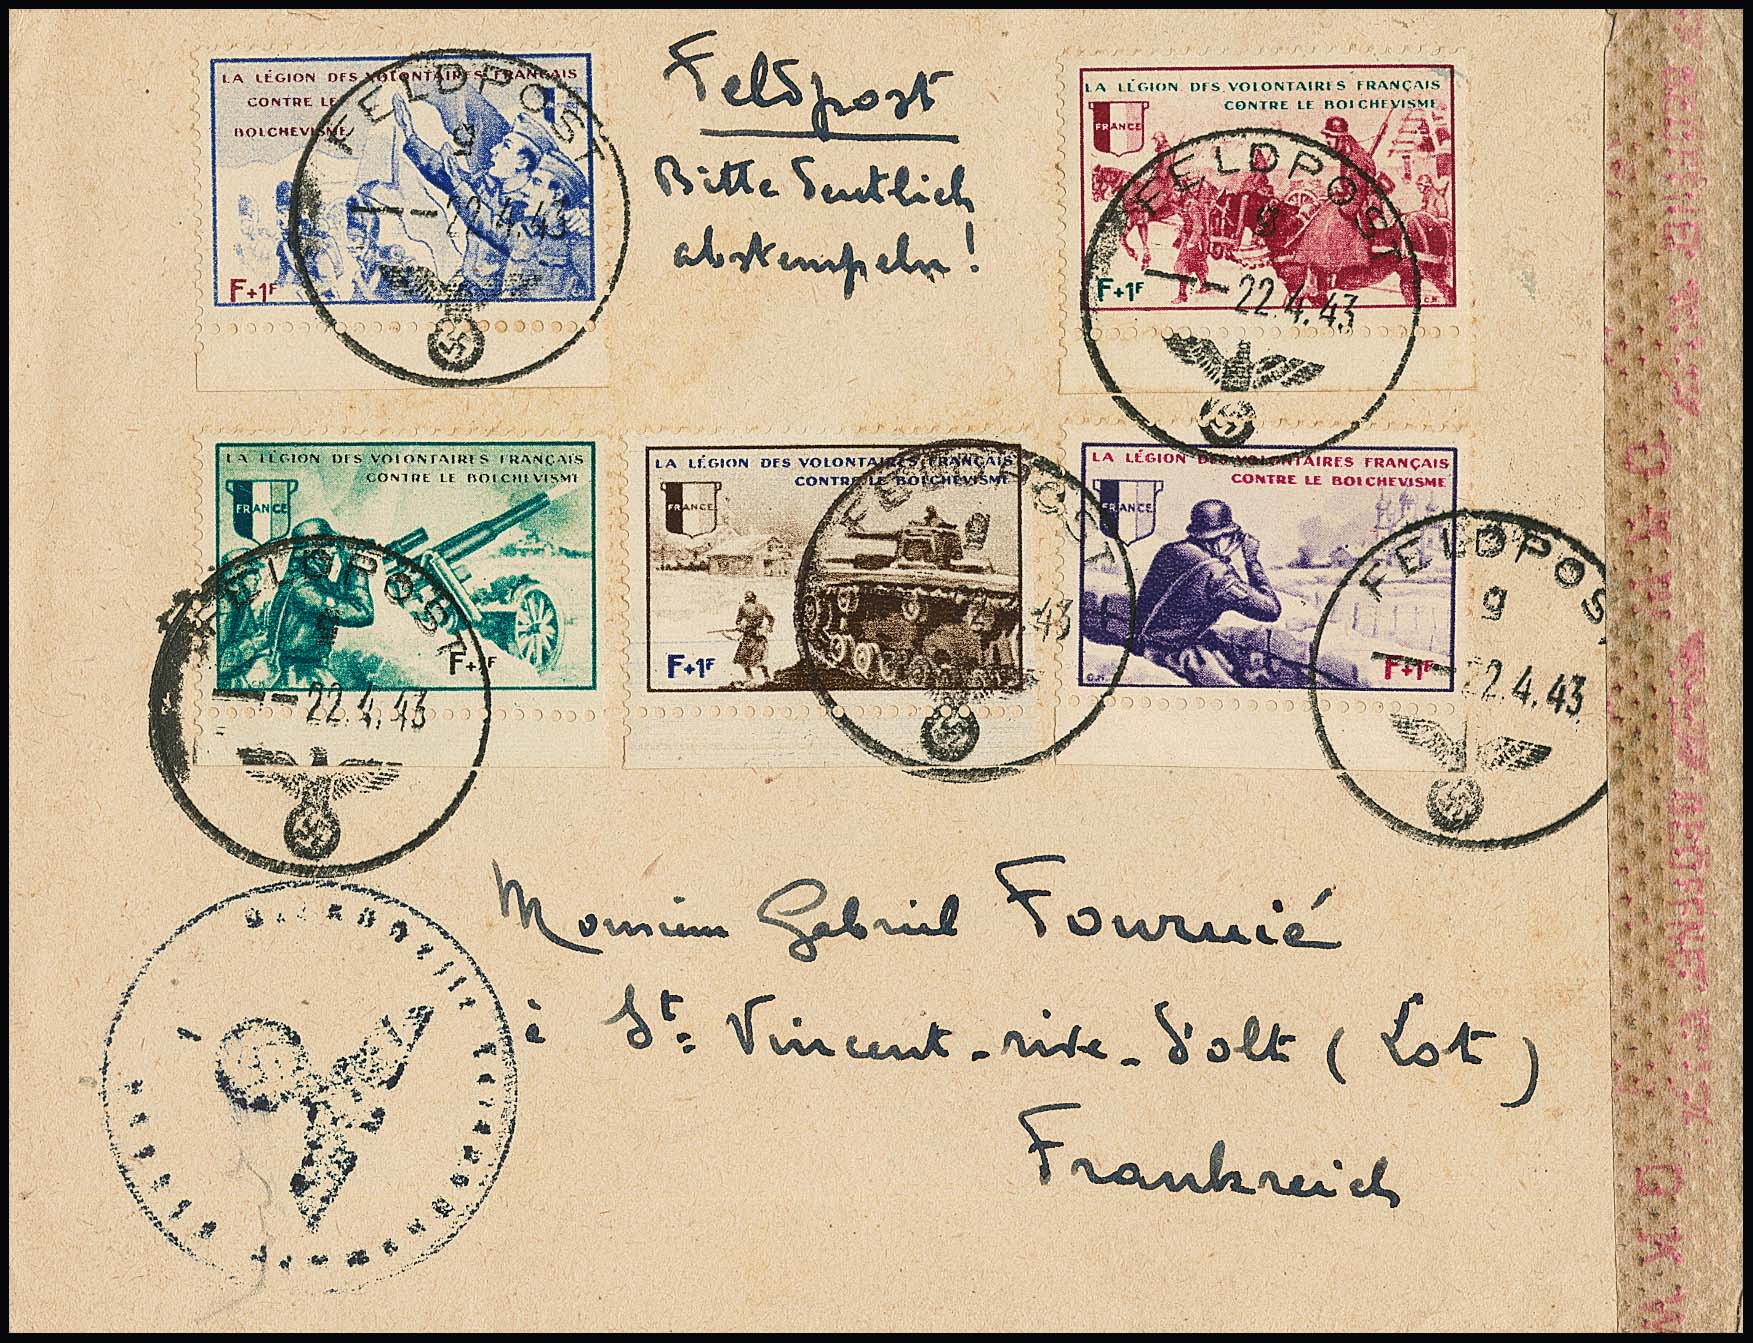 LA LÉGION DES VOLONTAIRES FRANÇAIS
CONTRE LE
BOLCHEVISME
F+1F
FELDPOST
g
22.4.43
Feldpost
Bitte deutlich
abstempeln!
LA LÉGION DES VOLONTAIRES FRANÇAIS
CONTRE LE BOLCHEVISME
FRANCE
F+1F
FELDPOST
g
22.4.43
LA LÉGION DES VOLONTAIRES FRANÇAIS
CONTRE LE BOLCHEVISME
FRANCE
F+1F
FELDPOST
g
22.4.43
LA LÉGION DES VOLONTAIRES FRANÇAIS
CONTRE LE BOLCHEVISME
FRANCE
F+1F
FELDPOST
43
LA LÉGION DES VOLONTAIRES FRANÇAIS
CONTRE LE BOLCHEVISME
FRANCE
F+1F
FELDPOST
g
22.4.43
Monsieur Gabriel Fournié
à St. Vincent-rive-d'olt (Lot)
Frankreich